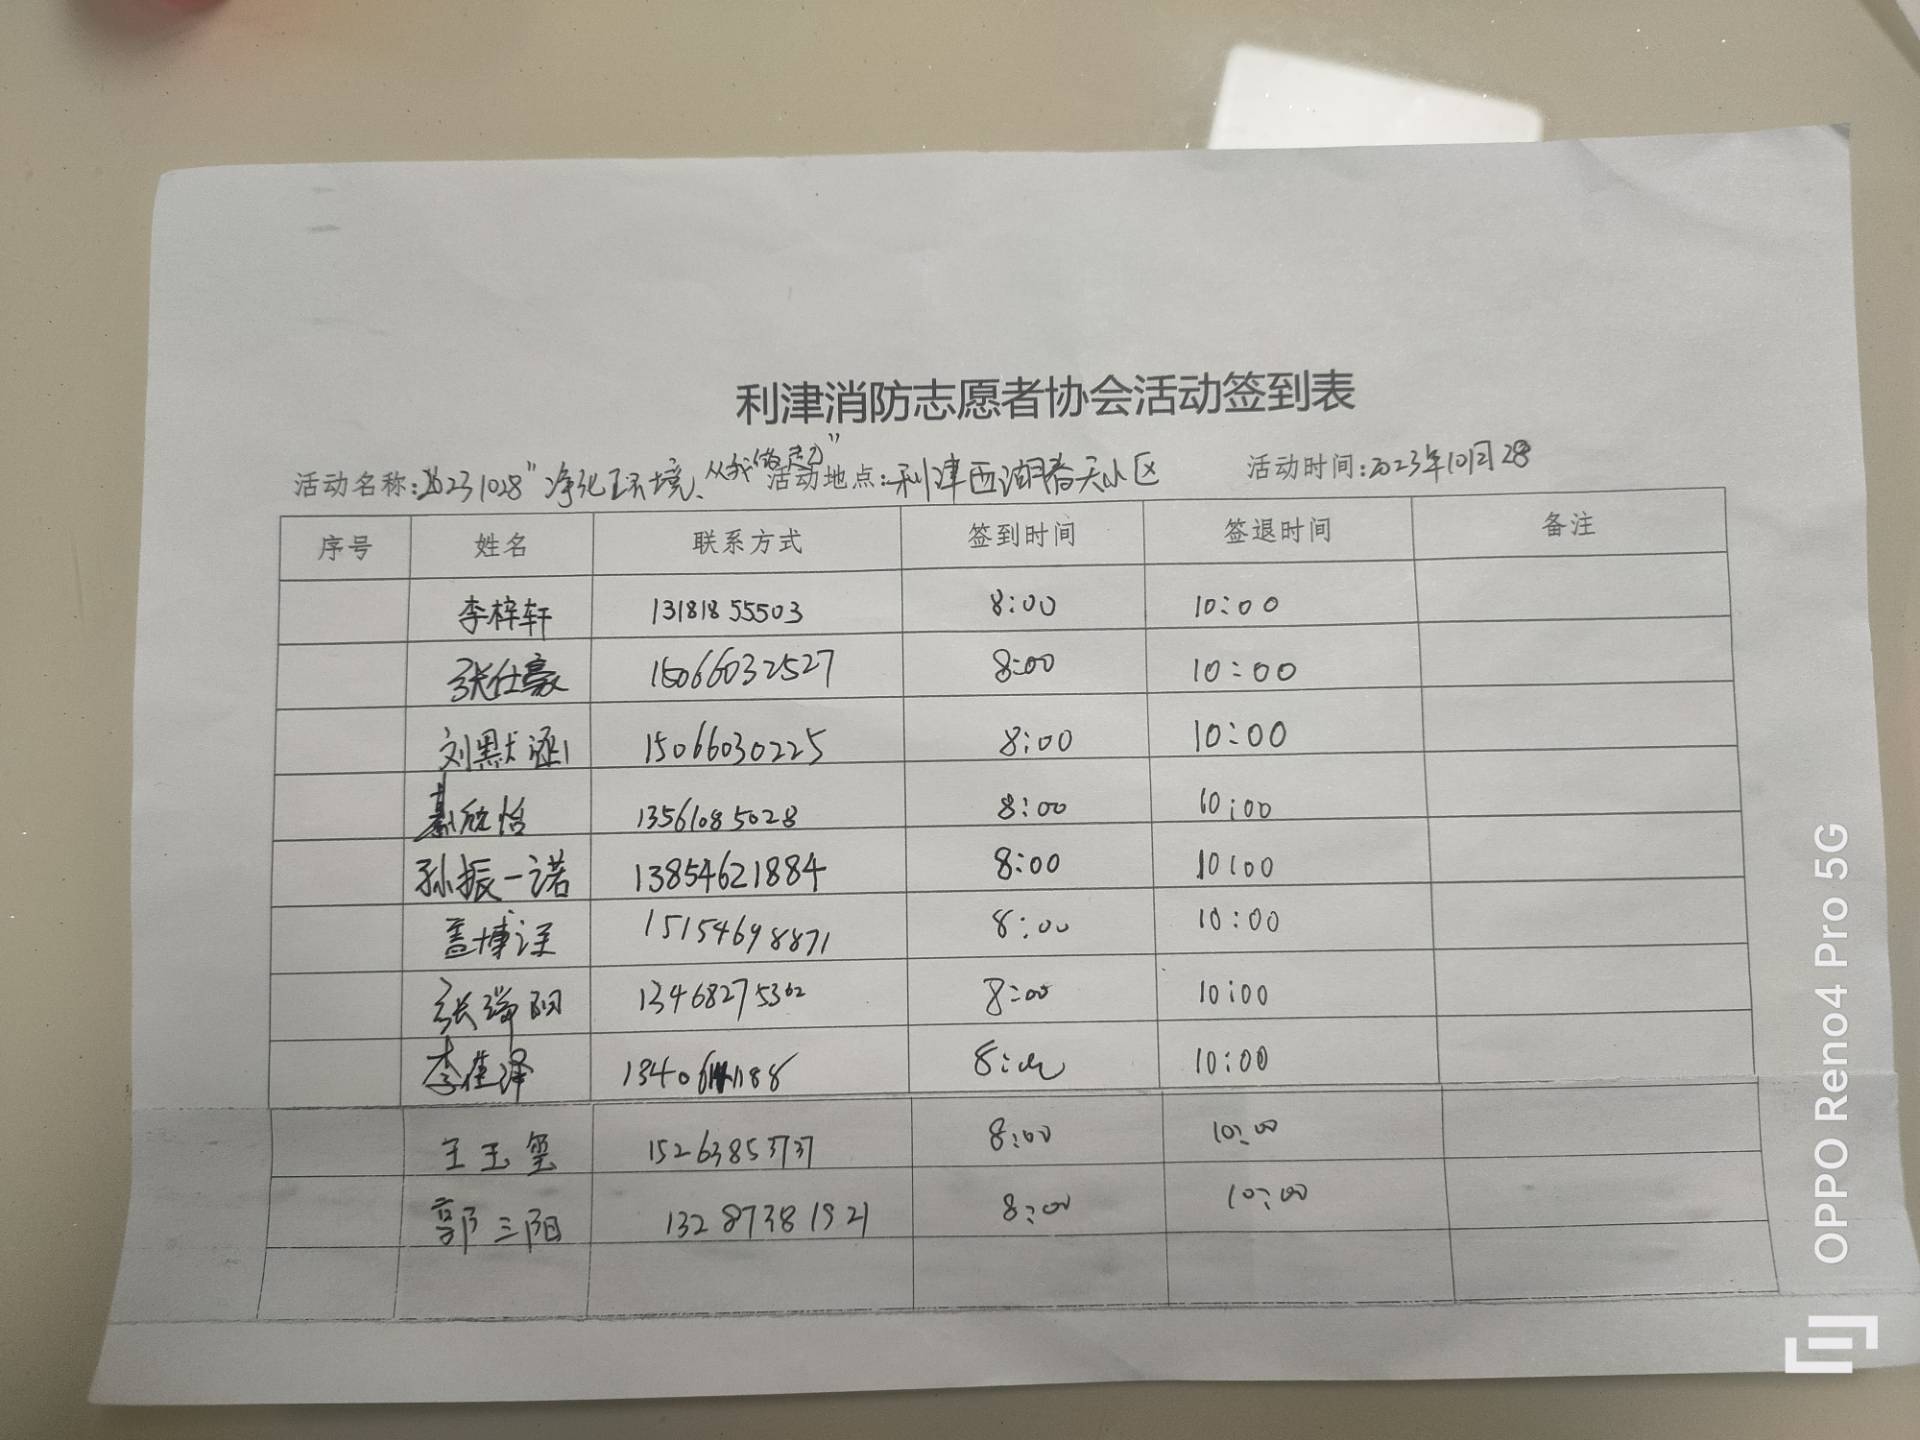 利津消防志愿者协会活动签到表
活动名称:20231028"净化环境、从我做起" 活动地点:利津西湖春天小区 活动时间:2023年10月28
序号 姓名 联系方式 签到时间 签退时间 备注
李梓轩 13181855503 8:00 10:00
张仕豪 15066032527 8:00 10:00
刘默涵 15066030225 8:00 10:00
欣怡 13561085028 8:00 10:00
孙振一诺 13854621884 8:00 10:00
盖博 15154698871 8:00 10:00
张瑞阳 13468275362 8:00 10:00
李佳泽 8:00 10:00
王玉玺 15263853737 8:00 10:00
郭三阳 13287381921 8:00 10:00
OPPO Reno4 Pro 5G